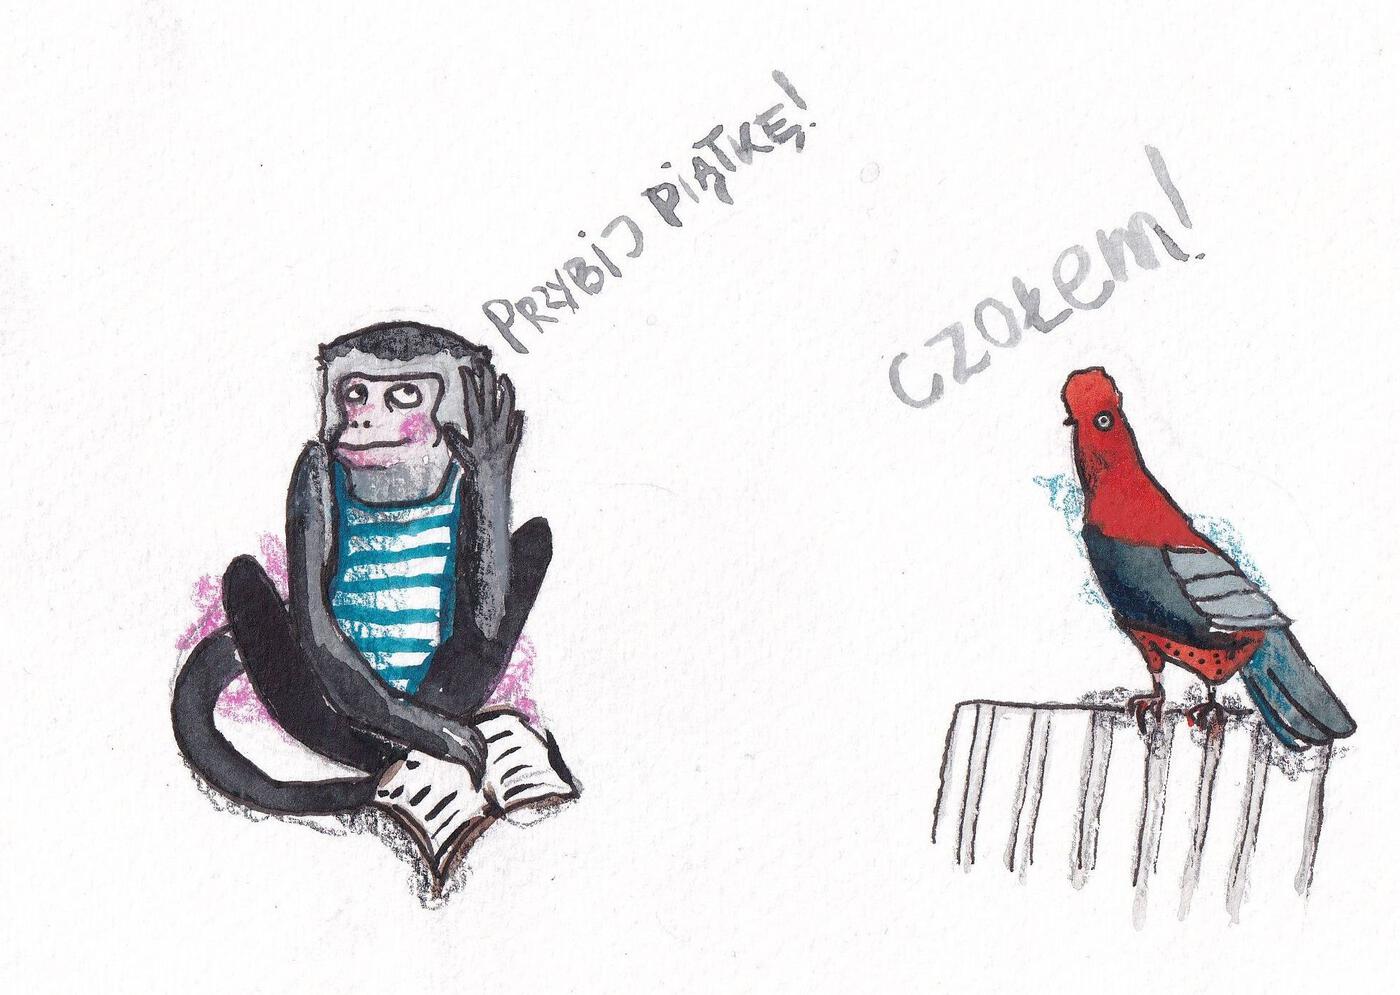 PRZYBIJ PIĄTKĘ!
CZOŁEM!